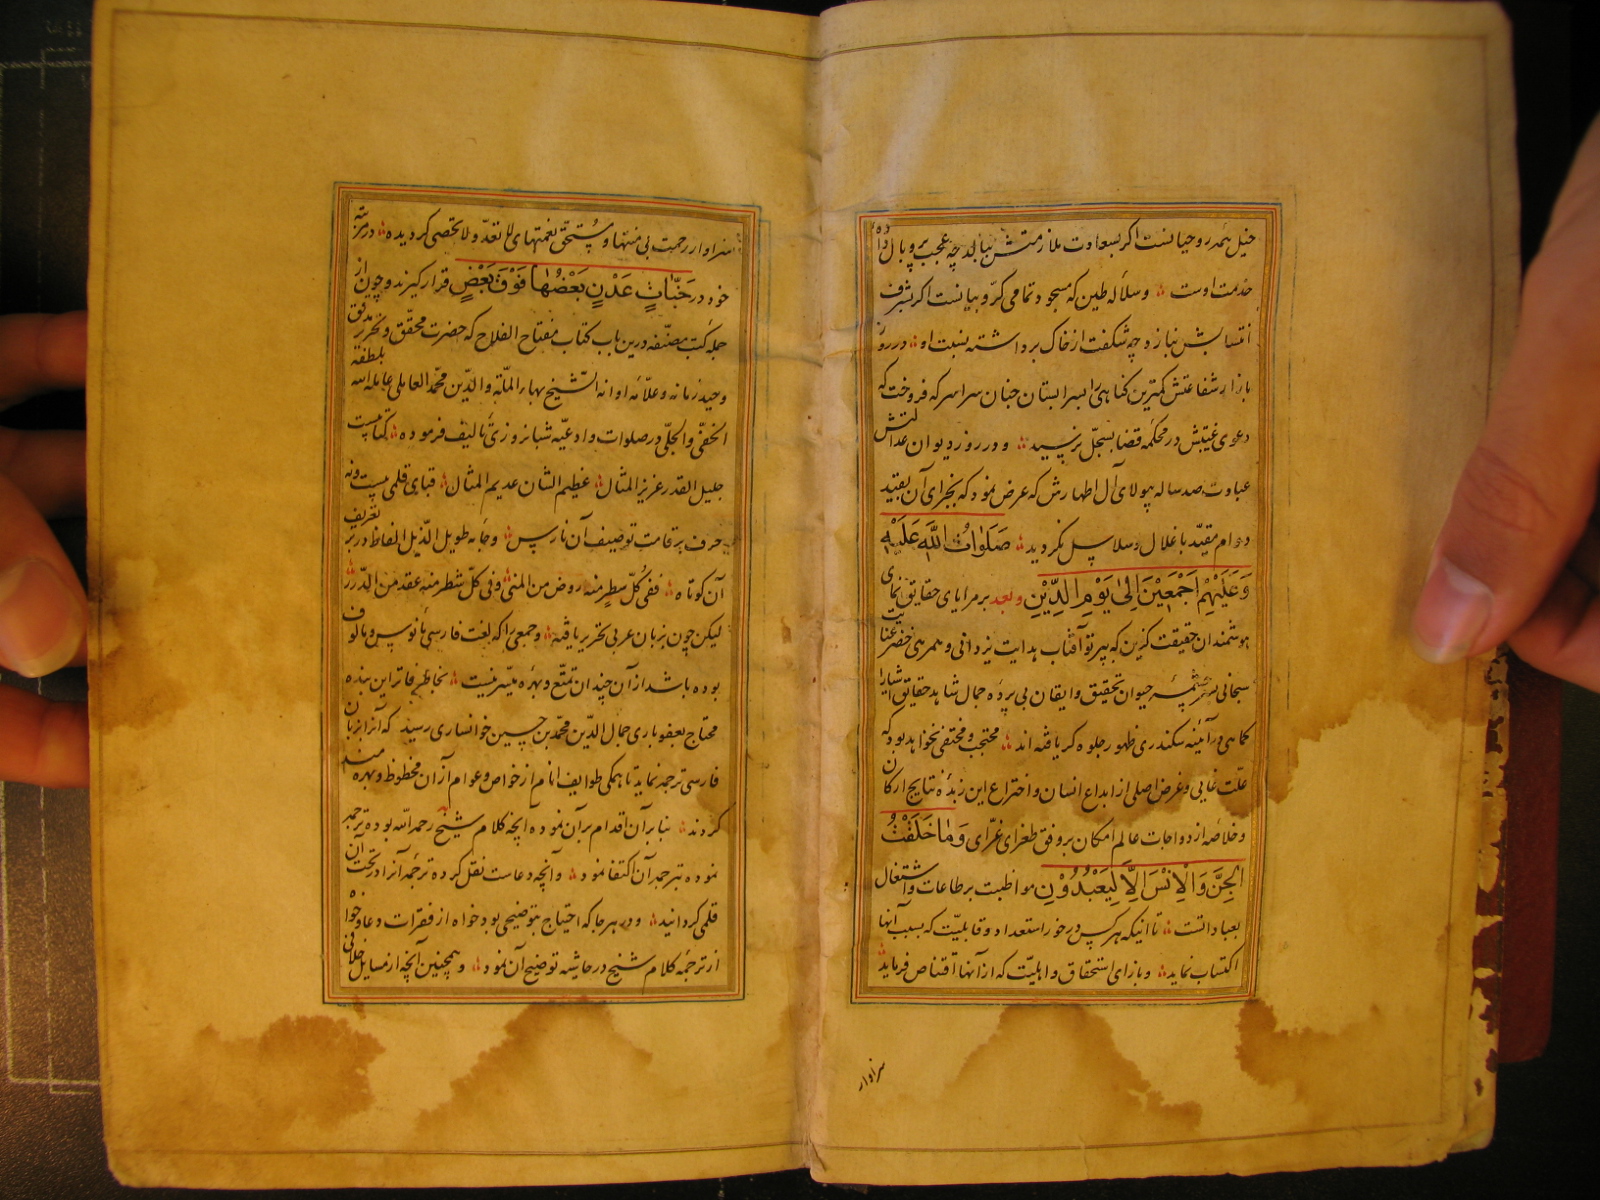 خیل همه روحیانست اکر بسعادت ملازمتش ببالد چه عجب پر و بال داده
خدمت اوست وسلاله طین که مسجود تمامی کرّوبیانست اکر بشرف
انتسابش بنازد چه شکفت از خاک برداشته نسبت او در روز
بازار شفاعتش کمترین کناهی را بسرابستان جنان سراسر که فروخت که
دعوی غبنش در محکمه قضا بسجلّ نرسید ودر روز دیوان عدالتش
عبادت صد ساله بولای آل اطهارش که عرض نمود که بجزای آن بقید
دوام مقیّد باغلال وسلاسل نکردید صَلَوٰاتُ اللّٰه عَلَیْهِ
وَعَلَیْهِمْ اَجْمَعینَ اِلیٰ یَوْمِ الدِّیْنِ وبعد بر مرایای حقایق نمای
هوشمندان حقیقت کزین که بپرتو آفتاب هدایت یزدانی و همرهی خضر عنایت
سبحانی سرچشمه حیوان تحقیق وایقان بی پرده جمال شاهد حقایق اشیارا
کماهی در آئینه سکندری ظهور جلوه کر یافته اند محتجب و مختفی نخواهد بود که
علّت غایی وغرض اصلی از ابداع انسان واختراع این زبدهٔ نتایج ارکان
وخلاصه ازدواجات عالم امکان بر وفق طغرای غرّای وَمٰا خَلَقْتُ
الْجِنَّ وَالْاِنْسَ اِلاَّ لِیَعْبُدُوْنِ مواظبت بر طاعات واشتغال
بعباداتست تا آنیکه هر کس در خور استعداد و قابلیّت که بسبب آنها
اکتساب نماید وبازای استحقاق واهلیّت که از آنها اقتناص فرماید
سزاوار
سزاوار رحمت بی منتها ومستحقّ نعمتهای لا تعدّ ولا تحصی کردیده در مرتبه
خود در جَنّاتِ عَدْنٍ بَعْضُهٰا فَوْقَ بَعْضٍ قرار کیرند وچون از
جمله کتب مصنّفه درین باب کتاب مفتاح الفلاح که حضرت محقّق و نحریر مدقق
وحید زمانه وعلّامه اوانه الشیخ بهاء الملّة والدّین محمّد العاملی عامله الله بلطفه
الخفّی والجلّی در صلوات وادعیّه شبانروزی تألیف فرموده کتابیست
جلیل القدر عزیز المثال عظیم الشان عدیم المثال قبای قلمی بیست ونه
حرف بر قامت توصیف آن نارس وجامه طویل الذّیل الفاظ در بر تعریف
آن کوتاه ففی کُلّ سطرٍ منه روض من المنی وفی کلّ شطر منه عقد من الدّرر
لیکن چون بزبان عربی تحریر یافته وجمعی را که بلغت فارسی مانوس ومالوف
بوده باشد از آن چندان تمتّع وبهره میسّر نیست بخاطر فاتر این بنده
محتاج بعفو باری جمال الدّین محمّد بن حسین خوانساری رسید که آنرا بزبان
فارسی ترجمه نماید تا همکی طوایف انام از خواص وعوام از آن محظوظ وبهره مند
کردند بنابر آن اقدام بر آن نموده آنچه کلام شیخ رحمه الله بوده ترجمه
نموده بترجمه آن اکتفا نمود وآنچه دعاست نقل کرده ترجمه آنرا در تحت آن
قلمی کردانید ودر هر جا که احتیاج بتوضیحی بود خواه از فقرات دعا وخواه
از ترجمه کلام شیخ در حاشیه توضیح آن نمود وهمچنین آنچه از مسایل خلافی